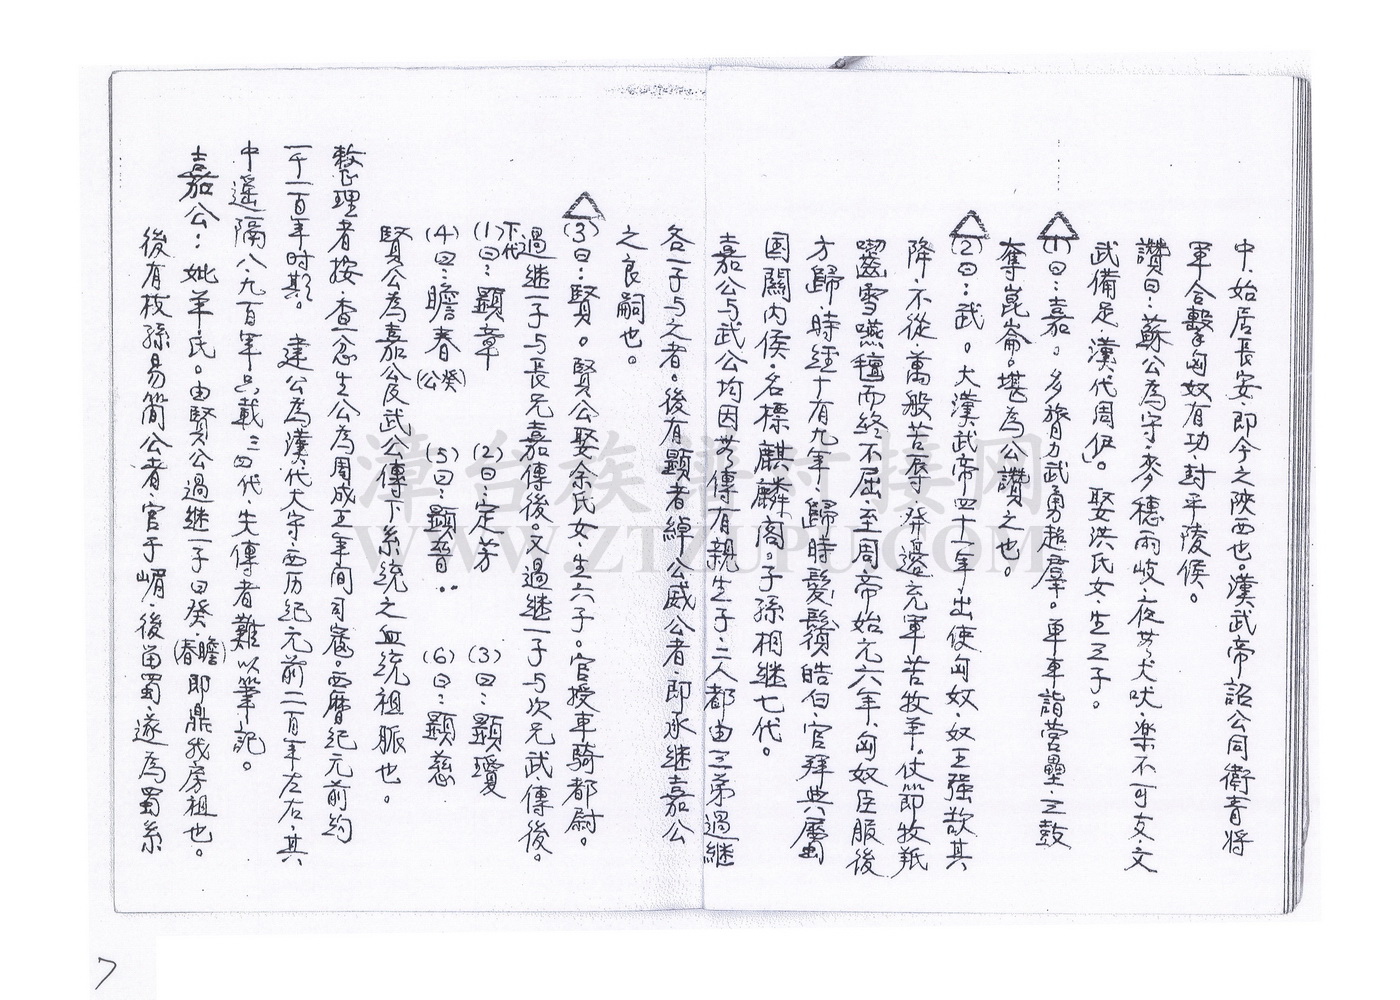 中．始居長安．即今之陝西也。漢武帝詔公同衛青將
軍合擊匈奴有功．封平陵侯。
讚曰：蘇公為守．麥穗兩岐．夜無犬吠．樂不可支．文
武備足．漢代周伊」。娶洪氏女．生三子。
(1)曰：嘉。多旅力武勇超羣。單車詣營壘．三鼓
奪崑崙。堪為公讚之也。
(2)曰：武。大漢武帝四十年．出使匈奴．奴王強欲其
降．不從．萬般苦辱．發邊充軍苦牧羊．仗節牧羝
囓雪嚥氊而終不屈．至周帝始元六年．匈奴臣服後
方歸．時經十有九年．歸時髮鬚皓白．官拜典屬國
関內侯．名標麒麟閣。子孫相継七代。
嘉公与武公均因無傳有親生子．二人都由三弟過継
各一子与之者。後有顯者綽公威公者．即承継嘉公
之良嗣也。
(3)曰：賢。賢公娶余氏女．生六子。官授車騎都尉。
過継一子与長兄嘉傳後。又過継一子与次兄武傳後。
下代
(1)曰：顯章 (2)曰：定芳 (3)曰：顯瓊
(4)曰：瞻春(癸公) (5)曰：顯晉‥ (6)曰：顯慈
賢公為嘉公及武公傳下系統之血統祖脈也。
整理者按．查忿生公為周成王年間司寇。西曆紀元前約
一千一百年時期。建公為漢代太守．西历紀元前二百年左右．其
中遙隔八．九百年只載三四代．失傳者難以筆記。
嘉公：妣羊氏。由賢公過継一子曰癸．(瞻春)即鼎我房祖也。
後有枝孫易簡公者．官于嵋．後留蜀．遂為蜀系
漳台族譜对接网
WWW.ZTZUPU.COM
7